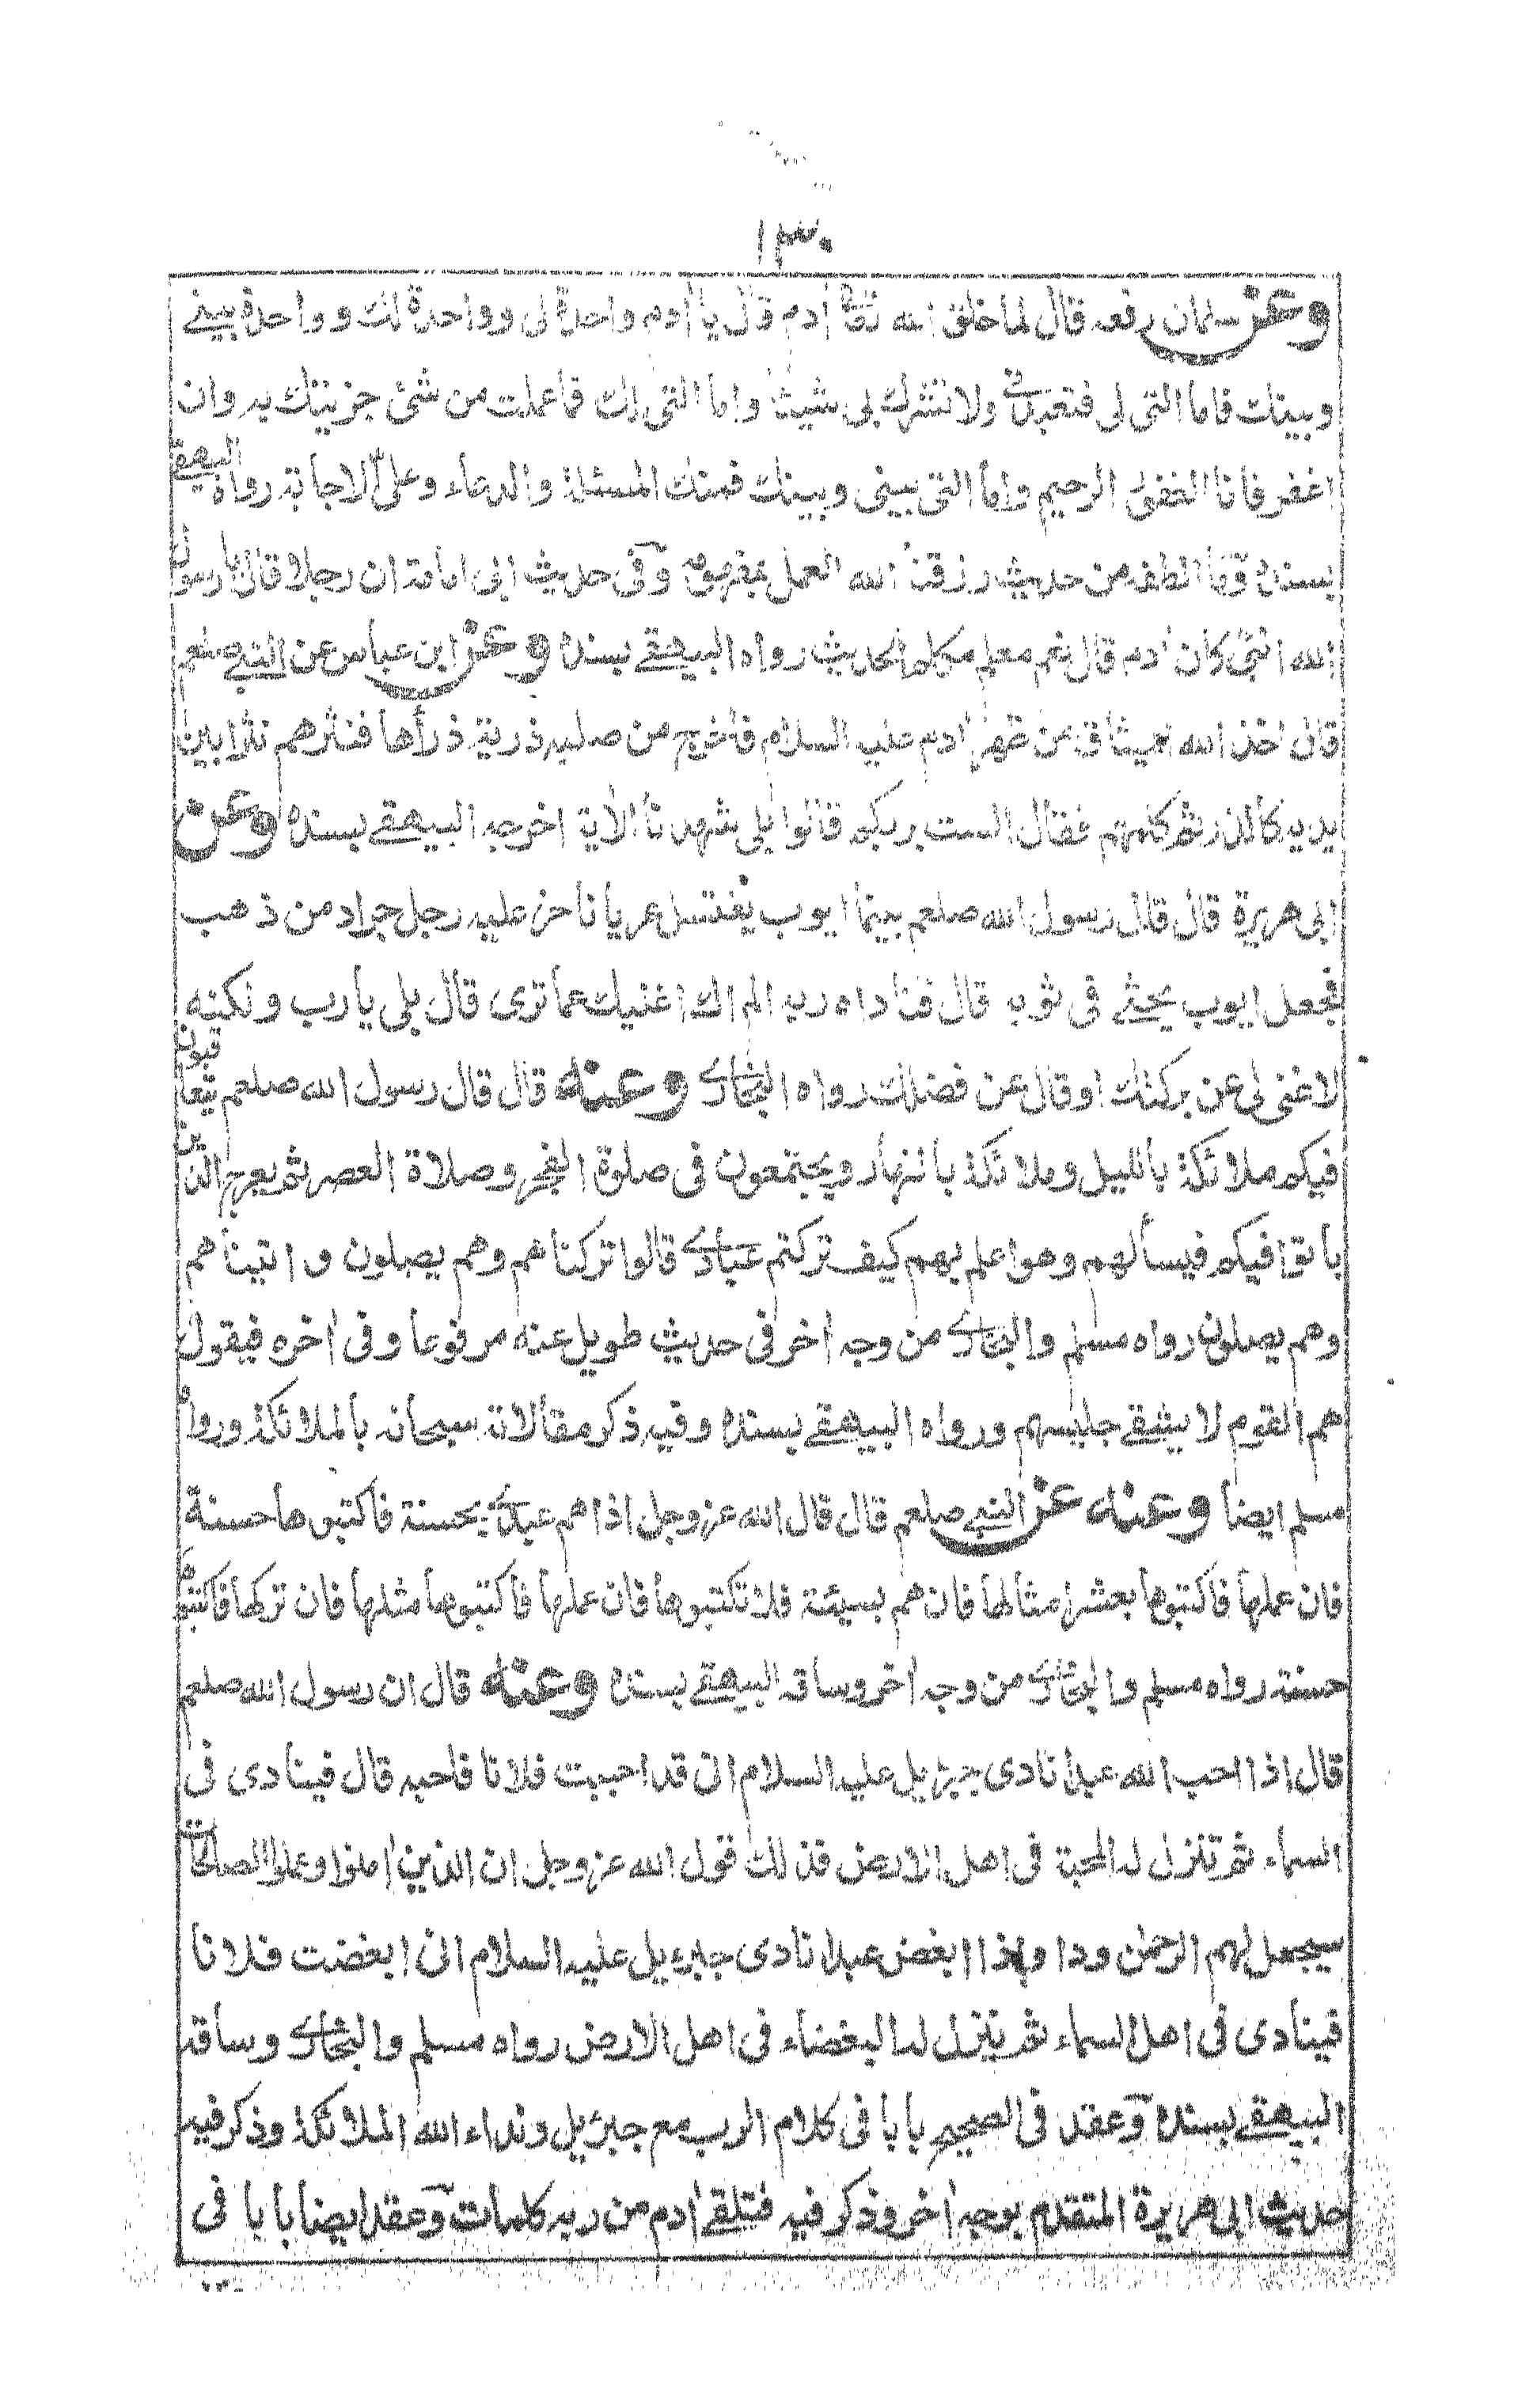 ١٣٠
وعن سلمان رفعه قال لما خلق الله تعالى أدم قال يا أدم واحدة لى وواحدة لك وواحدة بينے
وبينك فاما التى لى فتعبدنى ولا تشرك بى شيئا واما التى لك فما عملت من شئ جزيتك به وان
اغفر فانا الغفور الرحيم واما التى بينى وبينك فمنك المسئلة والدعاء وعلى الاجابة رواه البيهقے
بسنده وما الطفه من حديث رزقنا الله العمل بمفهومه وفى حديث ابى امامة ان رجلا قال يا رسول
الله انبى كان أدم قال نعم معلم مكلم الحديث رواه البيهقے بسنده وعن ابن عباس عن النبے صلعم
قال اخذ الله الميثاق من ظهر أدم عليه السلام فاخرج من صلبه ذرية ذرأها فنثرهم نثرا بين
يديه كالذر ثم كلمهم فقال الست بربكم قالوا بلى شهدنا الأية اخرجه البيهقے بسنده وعن
ابى هريرة قال قال رسول الله صلعم بينما ايوب يغتسل عريانا خر عليه رجل جراد من ذهب
فجعل ايوب يحثے فى ثوبه قال فناداه ربه الم اك اغنيك عما ترى قال بلى يا رب ولكنه
لا غنى لى عن بركتك او قال عن فضلك رواه البخارى وعنه قال قال رسول الله صلعم يتعاقبون
فيكم ملائكة بالليل وملائكة بالنهار ويجتمعون فى صلوة الفجر وصلاة العصر ثم يعرج الذين
باتوا فيكم فيسألهم وهو اعلم بهم كيف تركتم عبادى قالوا تركناهم وهم يصلون واتيناهم
وهم يصلون رواه مسلم والبخارى من وجه أخر فى حديث طويل عنه مرفوعا وفى أخره فيقول
هم القوم لا يشقے جليسهم ورواه البيهقے بسنده وفيه ذكر مقالاته سبحانه بالملائكة ورواه
مسلم ايضا وعنه عن النبے صلعم قال قال الله عز وجل اذا هم عبدى بحسنة فاكتبوها حسنة
فان عملها فاكتبوها بعشر امثالها فان هم بسيئة فلا تكتبوها فان عملها فاكتبوها مثلها فان تركها فاكتبوها
حسنة رواه مسلم والبخارى من وجه أخر وساقه البيهقے بسنده وعنه قال ان رسول الله صلعم
قال اذا احب الله عبدا نادى جبرئيل عليه السلام انى قد احببت فلانا فاحبه قال فينادى فى
السماء ثم تنزل له المحبة فى اهل الارض فذلك قول الله عز وجل ان الذين أمنوا وعملوا الصلحات
سيجعل لهم الرحمن ودا واذا ابغض عبدا نادى جبرءيل عليه السلام انى ابغضت فلانا
فينادى فى اهل السماء ثم ينزل له البغضاء فى اهل الارض رواه مسلم والبخارى وساقه
البيهقے بسنده وعقد فى الصحيح بابا فى كلام الرب مع جبرئيل ونداء الله الملائكة وذكر فيه
حديث ابى هريرة المتقدم بوجه أخر وذكر فيه فتلقے أدم من ربه كلمات وعقد ايضا بابا فى